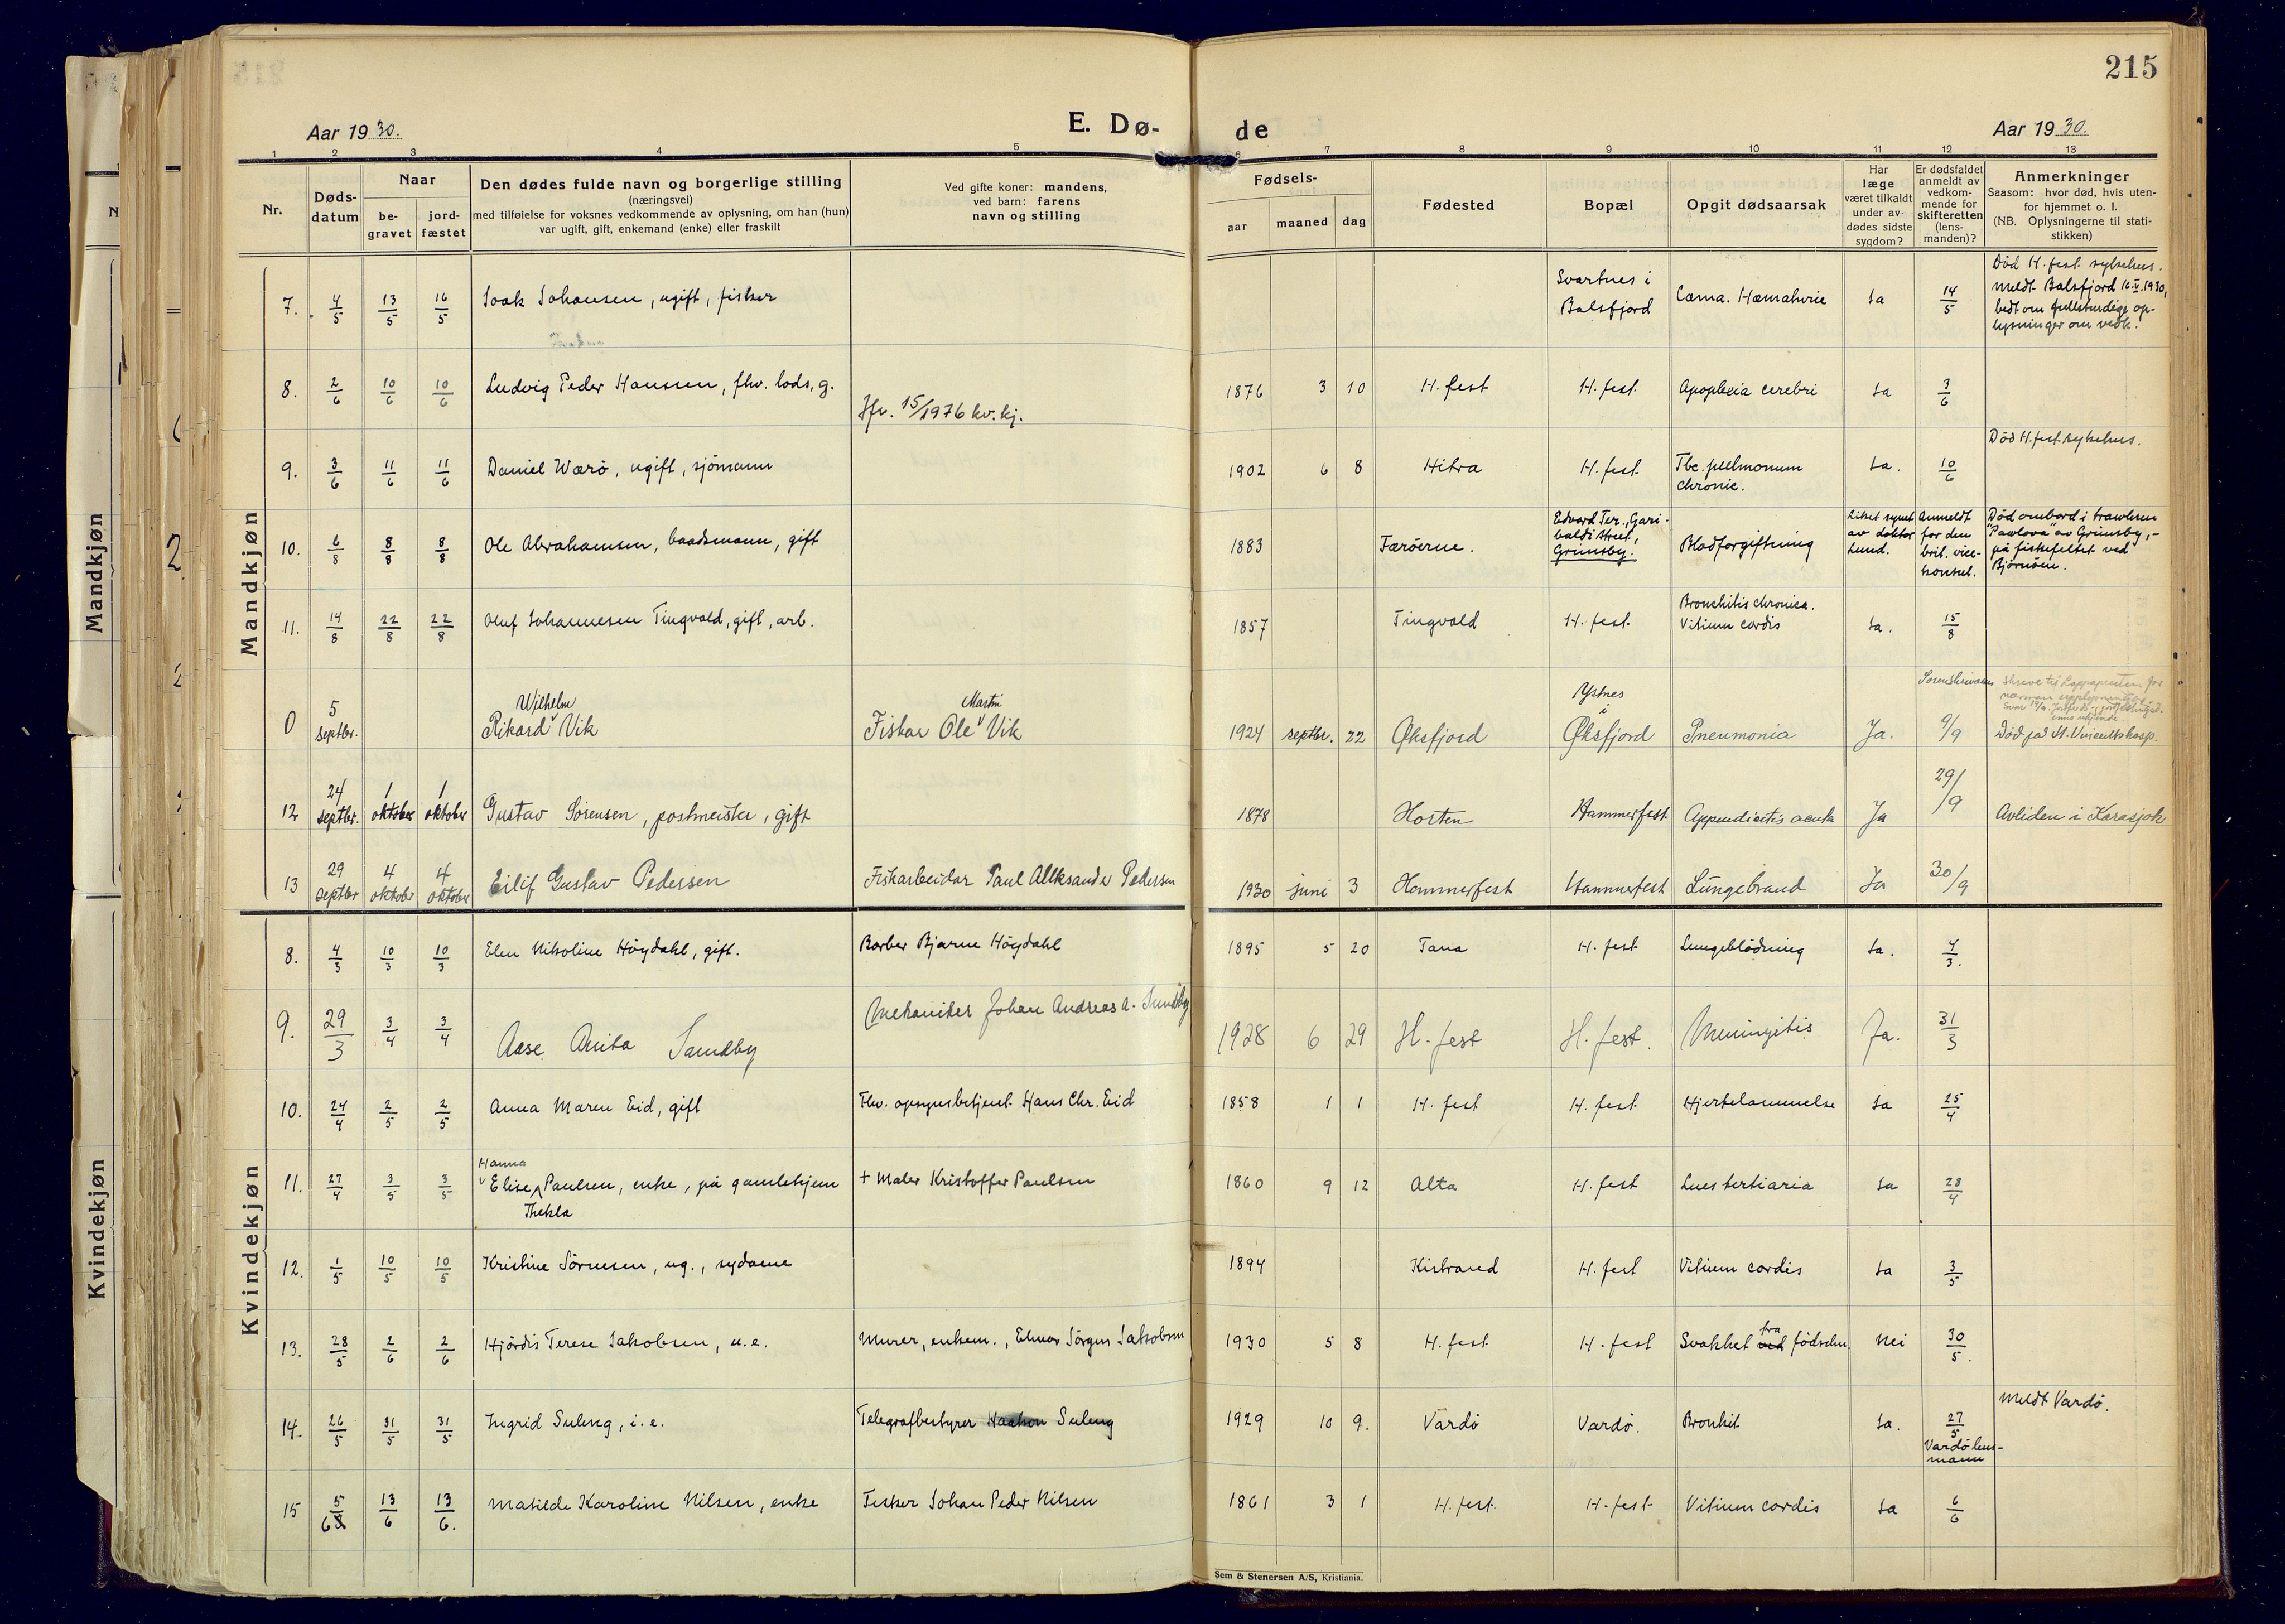 215
Aar 1930.
E. Dø-
de
Aar 1930.
1 2 3 4 5 6 7 8 9 10 11 12 13
Nr.
Døds-
datum
Naar
be-
gravet
jord-
fæstet
Den dødes fulde navn og borgerlige stilling
(næringsvei)
med tilføielse for voksnes vedkommende av oplysning, om han (hun)
var ugift, gift, enkemand (enke) eller fraskilt
Ved gifte koner: mandens,
ved barn: farens
navn og stilling
Fødsels-
aar
maaned
dag
Fødested
Bopæl
Opgit dødsaarsak
Har
læge
været tilkaldt
under av-
dødes sidste
sygdom?
Er dødsfaldet
anmeldt av
vedkom-
mende for
skifteretten
(lens-
manden)?
Anmerkninger
Saasom: hvor død, hvis uten-
for hjemmet o. l.
(NB. Oplysningerne til stati-
stikken)
Mandkjøn
7. 4/5 13/5 16/5 Isak Johansen, ugift, fisker
Svartnes i
Balsfjord
Coma. Hæmaturie
Ja
14/5
Död H.fest sykehus.
Meldt Balsfjord 16.V.1930,
bedt om fullstendige op-
lysninger om vedk.
8. 2/6 10/6 10/6 Ludvig Peder Hanssen, fhv. lods, g.
Jfr. 15/1976 kv.kj.
1876 3 10 H.fest H.fest Apoplexia cerebri Ja 3/6
9. 3/6 11/6 11/6 Daniel Wærö, ugift, sjömann
1902 6 8 Hitra H.fest Tbc. pulmonum
chronic.
Ja. 10/6
Död H.fest sykehus.
10. 6/8 8/8 8/8 Ole Abrahamsen, baadsmann, gift
1883 Færöerne.
Edvard Ter., Gari-
baldi Street,
Grimsby.
Blodforgiftning
Liket synet
av doktor
Lund.
Anmeldt
for den
brit. vice-
konsul.
Död ombord i trawleren
"Pavlova" av Grimsby,-
på fiskefeltet ved
Björnöen.
11. 14/8 22/8 22/8 Oluf Johannesen Tingvold, gift, arb.
1857 Tingvold H.fest
Bronchitis chronica.
Vitium cordis
Ja. 15/8
0 5 septbr. Rikard Wilhelm Vik
Fiskar Ole Martin Vik
1924 septbr. 22 Øksfjord
Ystnes
i
Øksfjord
Pneumonia Ja.
Sorenskrivaren
9/9
Död på St. Vincents hosp.
12 24 septbr. 1 oktober 1 oktober Gustav Sörensen, postmeister, gift
1878 Horten Hammerfest Appendicitis acuta Ja 29/9 Avliden i Karasjok
13 29 septbr 4 oktober 4 oktober Eilif Gustav Pedersen
Fiskarbeidar Paul Alleksander Pedersen
1930 juni 3 Hammerfest Hammerfest Lungebrand Ja 30/9
Kvindekjøn
8. 4/3 10/3 10/3 Elen Nikoline Höydahl, gift.
Barber Bjarne Höydahl
1895 5 20 Tana H.fest Lungeblödning Ja. 4/3.
9. 29/3 3/4 3/4 Aase Anita Sandby
Mekaniker Johan Andreas A. Sundby
1928 6 29 H.fest H.fest. Meningitis Ja. 31/3
10. 24/4 2/5 2/5 Anna Maren Eid, gift
Fhv. opsynsbetjent Hans Chr. Eid
1858 1 1 H.fest H.fest Hjertelammelse Ja 25/4
11. 27/4 3/5 3/5 Hanna
Elise Paulsen, enke, på gamlehjem
Thekla
+ Maler Kristoffer Paulsen
1860 9 12 Alta H.fest Lues tertiaria Ja 28/4
12. 1/5 10/5 10/5 Kristine Sörnesen, ug., sydame
1894 Kistrand H.fest Vitium cordis Ja 3/5
13. 28/5 2/6 2/6 Hjördis Terese Jakobsen, u.e.
Murer, enkem., Elmar Jörgen Jakobsen
1930 5 8 H.fest H.fest Svakhet ved fra födselen. Nei 30/5.
14. 26/5 31/5 31/5 Ingrid Suleng, i.e.
Telegrafbestyrer Haakon Suleng
1929 10 9. Vardö Vardö. Bronkit Ja. 27/5
Vardö lens-
mann
Meldt Vardö.
15 5/6 13/6 13/6. Matilde Karoline Nilsen, enke
Fisker Johan Peder Nilsen
1861 3 1 H.fest. H.fest Vitium cordis Ja 6/6
Sem & Stenersen A/S, Kristiania.
Mandkjøn
Kvindekjøn